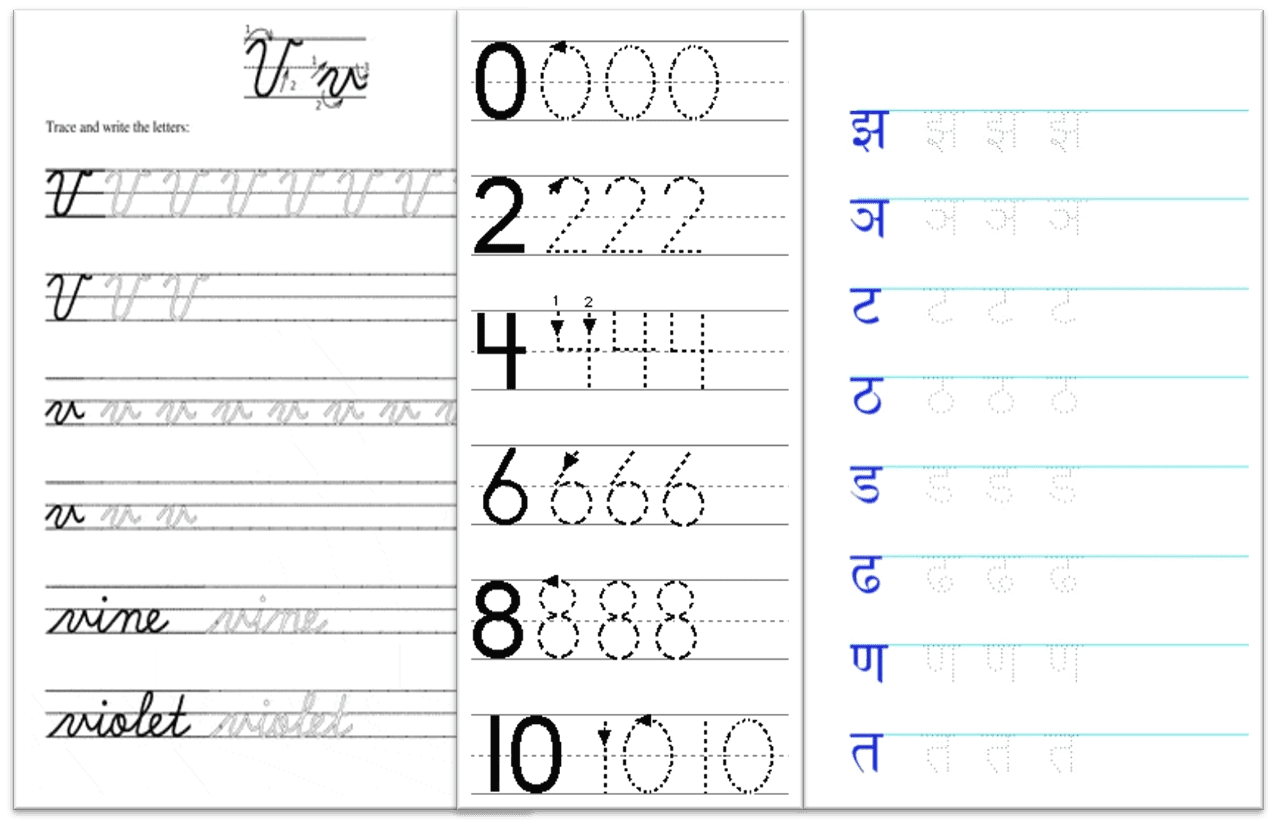 1 1 3
V v
2 2
Trace and write the letters:
V V V V V V V
V V V
v v v v v v v v
v v v
vine vine
violet violet
0 0 0 0
2 2 2 2
1 2
4 4 4 4
6 6 6 6
8 8 8 8
10 10 10
झ झ झ झ
ञ ञ ञ ञ
ट ट ट ट
ठ ठ ठ ठ
ड ड ड ड
ढ ढ ढ ढ
ण ण ण ण
त त त त